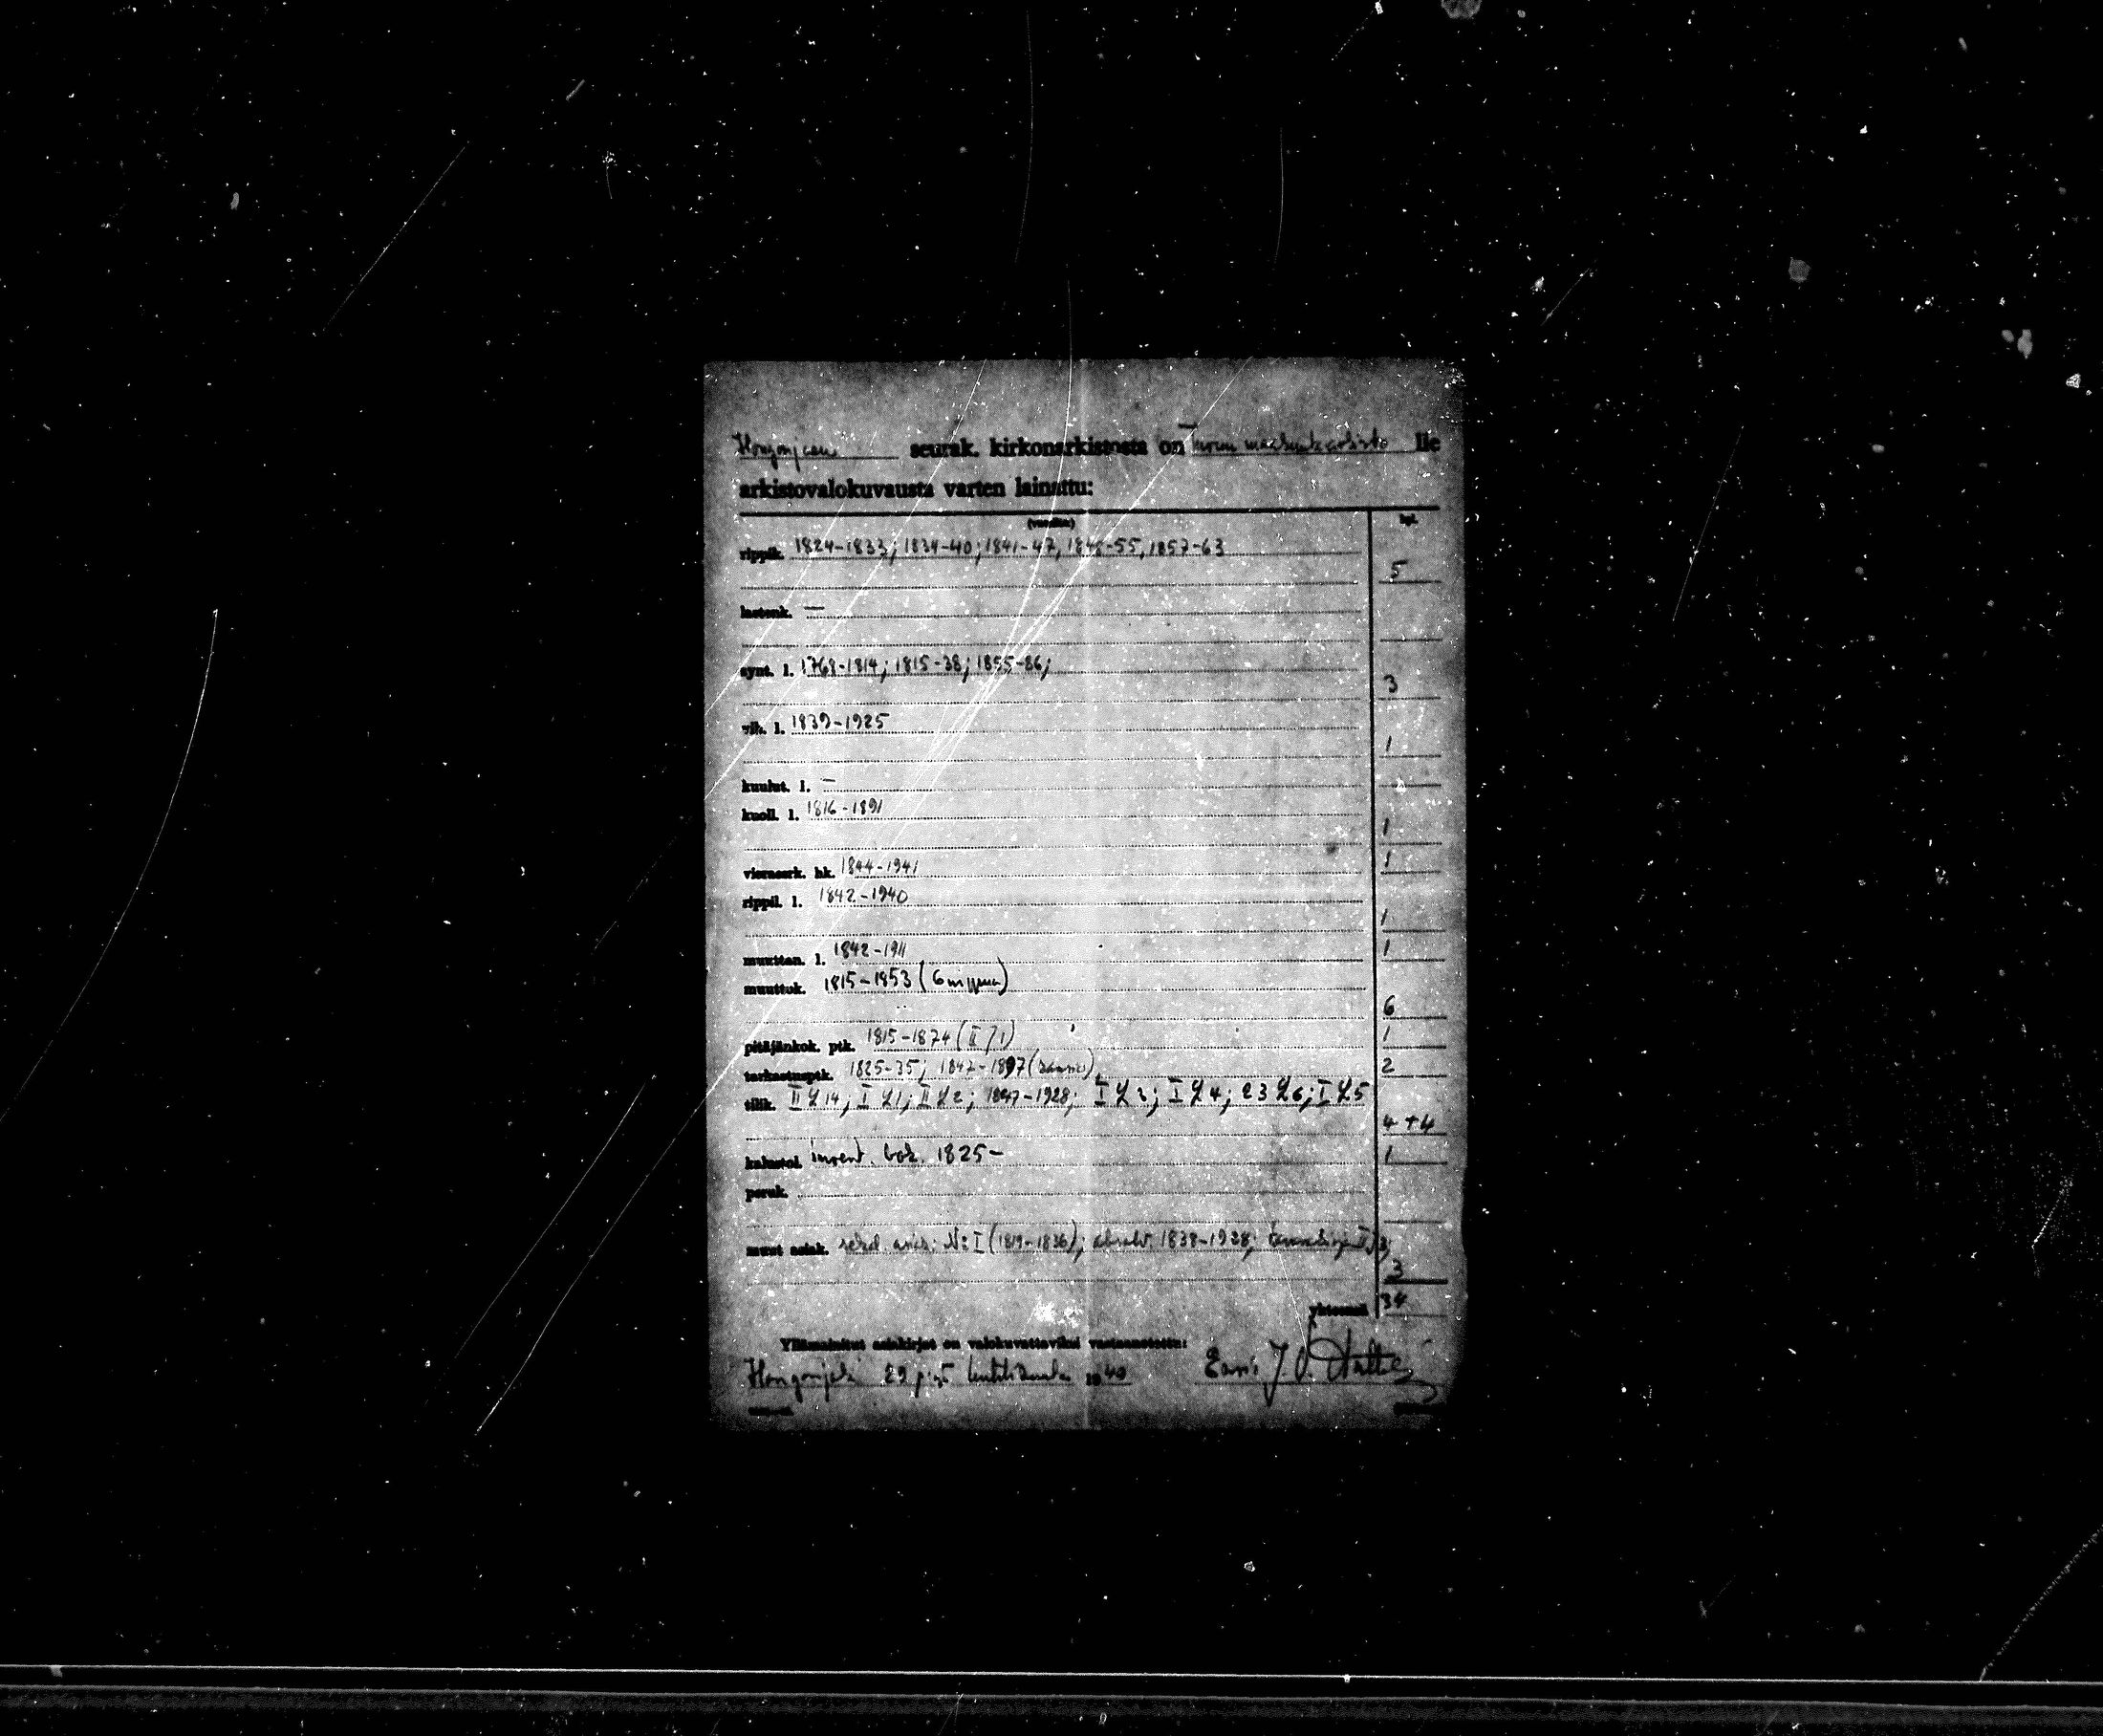 Hongonjoen seurak. kirkonarkistosta on Turun maakunta-arkisto lle
arkistovalokuvausta varten lainattu:
(vuosilta) kpl.
rippik. 1824-1833; 1834-40; 1841-47, 1848-55, 1857-63
5
lastenk. —
synt. l. 1768-1814; 1815-38; 1855-86;
3
vih. l. 1839-1925
1
kuulut. l. —
kuoll. l. 1816-1891
1
vierasrk. hk. 1844-1941 1
rippil. l. 1842-1940
1
muuttan. l. 1842-1911 1
muuttok. 1815-1853 (6 nippua)
6
pitäjänkok. ptk. 1815-1874 (II 1) 1
tarkastusptk. 1825-35; 1847-1897 2
tilik. II 14; I 1; II 2; 1847-1928; I 3; I 4; 23 6; I 5
4+4
kalustol. invent. bok. 1825- 1
peruk.
muut asiak. sekal. asiak: N:o I (1819-1836); 1838-1938;
3
yhteensä 34
Yllämainitut asiakirjat on valokuvattaviksi vastaanotettu:
Hongonjoki 29 p:nä huhtikuuta 1940 J. O.